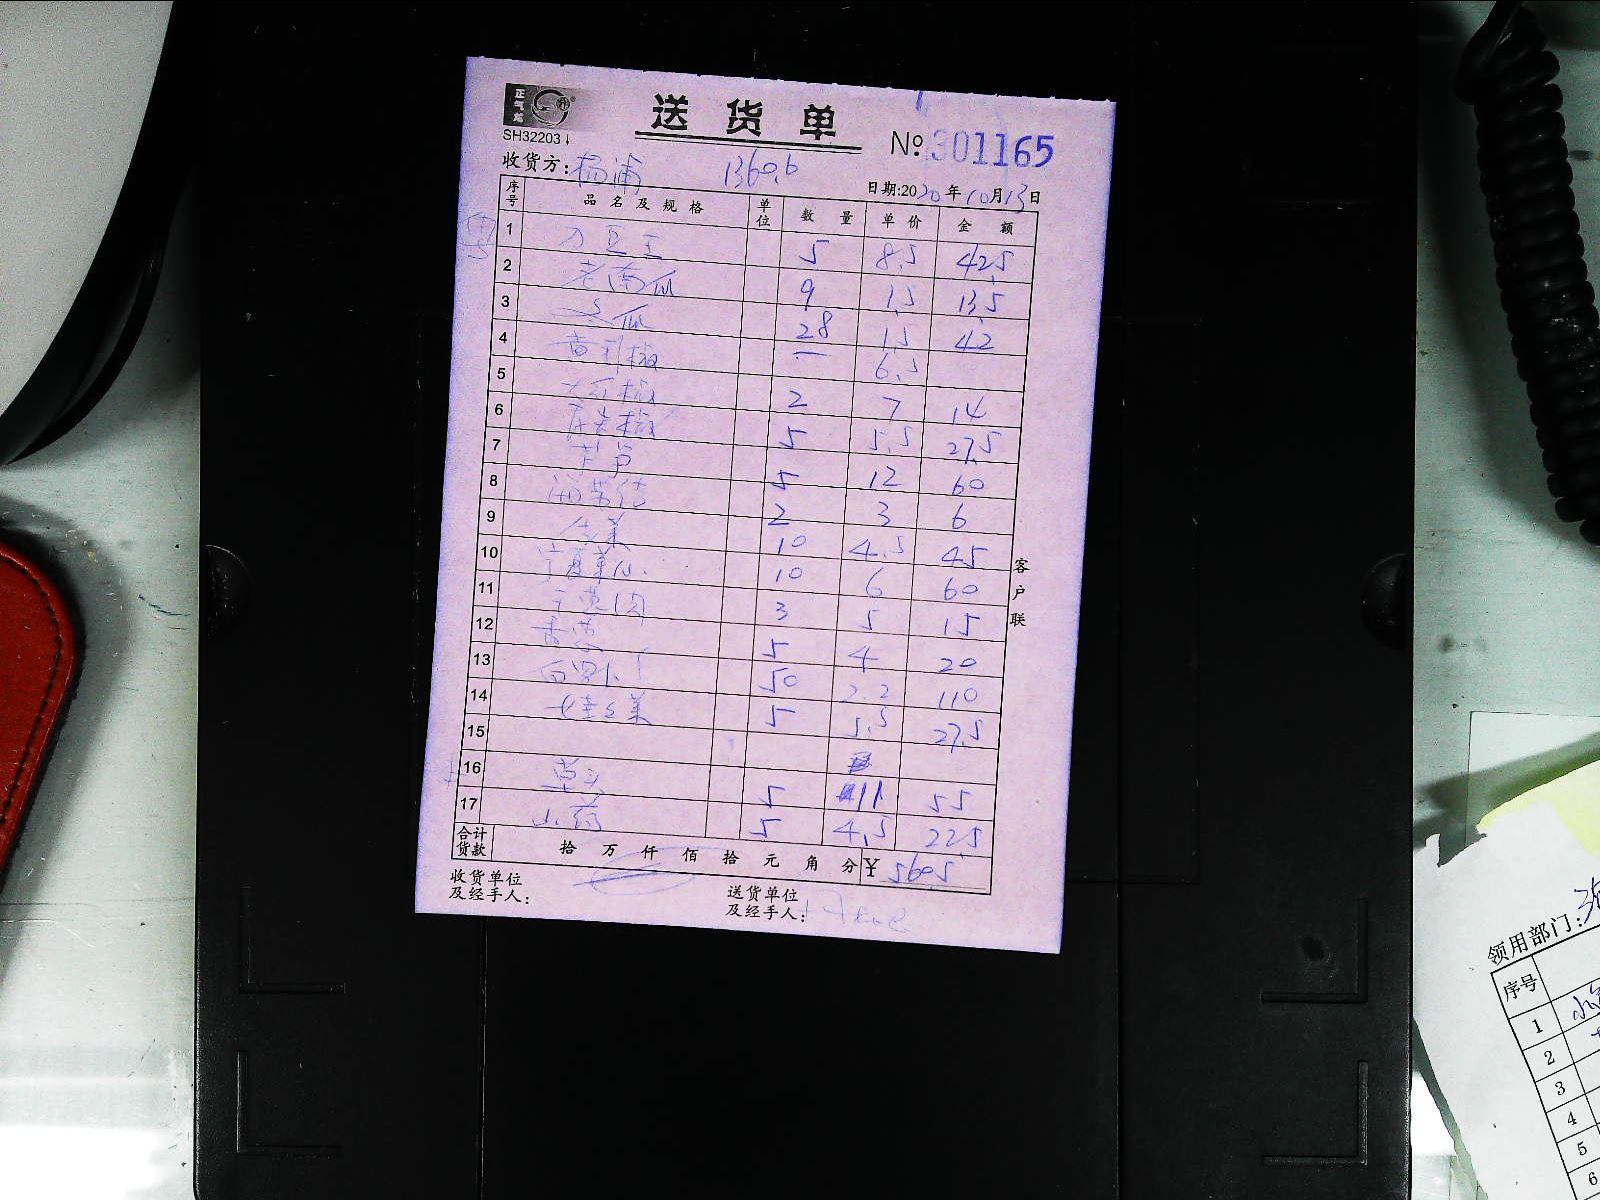 正气
送货单
SH32203
№ 301165
收货方: 杨浦 1360.6
日期:2020年10月13日
序号 品名及规格 单位 数量 单价 金额
1 刀豆王 5 8.5 42.5
2 老南瓜 9 1.5 13.5
3 冬瓜 28 1.5 42
4 黄利椒 — 6.5
5 大红椒 2 7 14
6 尖椒 5 5.5 27.5
7 芦笋 5 12 60
8 2 3 6
9 10 4.5 45
10 宁夏菜心 10 6 60
11 3 5 15
12 香菜 5 4 20
13 白萝卜 50 2.2 110
14 娃娃菜 5 5.5 27.5
15
16 草头 5 11 55
17 山药 5 4.5 22.5
合计货款 拾 万 仟 佰 拾 元 角 分 ¥ 560.5
收货单位及经手人:
送货单位及经手人:
客户联
领用部门:
序号
1
2
3
4
5
6